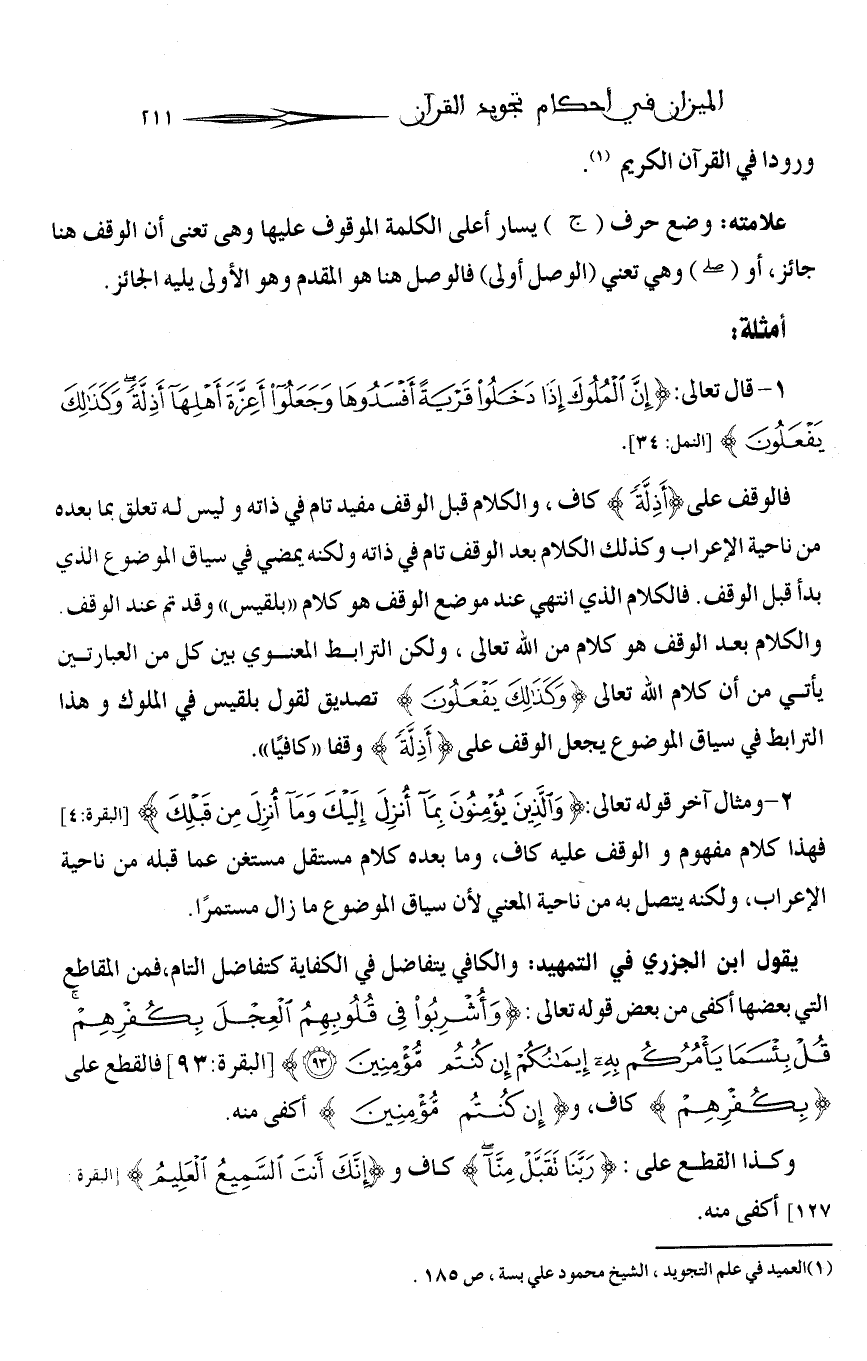 الميزان في أحكام تجويد القرآن ٢١١
ورودا في القرآن الكريم (١).
علامته: وضع حرف ( ج ) يسار أعلى الكلمة الموقوف عليها وهى تعنى أن الوقف هنا
جائز، أو ( صلے ) وهي تعني (الوصل أولى) فالوصل هنا هو المقدم وهو الأولى يليه الجائز.
أمثلة:
١- قال تعالى: ﴿ إِنَّ ٱلْمُلُوكَ إِذَا دَخَلُوا۟ قَرْيَةً أَفْسَدُوهَا وَجَعَلُوٓا۟ أَعِزَّةَ أَهْلِهَآ أَذِلَّةً ۖ وَكَذَٰلِكَ
يَفْعَلُونَ ﴾ [النمل: ٣٤].
فالوقف على ﴿أَذِلَّةً ﴾ كاف ، والكلام قبل الوقف مفيد تام في ذاته و ليس له تعلق بما بعده
من ناحية الإعراب وكذلك الكلام بعد الوقف تام في ذاته ولكنه يمضي في سياق الموضوع الذي
بدأ قبل الوقف. فالكلام الذي انتهي عند موضع الوقف هو كلام «بلقيس» وقد تم عند الوقف.
والكلام بعد الوقف هو كلام من الله تعالى ، ولكن الترابط المعنوي بين كل من العبارتين
يأتي من أن كلام الله تعالى ﴿ وَكَذَٰلِكَ يَفْعَلُونَ ﴾ تصديق لقول بلقيس في الملوك و هذا
الترابط في سياق الموضوع يجعل الوقف على ﴿ أَذِلَّةً ﴾ وقفا «كافيًا».
٢-ومثال آخر قوله تعالى: ﴿ وَٱلَّذِينَ يُؤْمِنُونَ بِمَآ أُنزِلَ إِلَيْكَ وَمَآ أُنزِلَ مِن قَبْلِكَ ﴾ [البقرة:٤]
فهذا كلام مفهوم و الوقف عليه كاف، وما بعده كلام مستقل مستغن عما قبله من ناحية
الإعراب، ولكنه يتصل به من ناحية المعني لأن سياق الموضوع ما زال مستمرًا.
يقول ابن الجزري في التمهيد: والكافي يتفاضل في الكفاية كتفاضل التام،فمن المقاطع
التي بعضها أكفى من بعض قوله تعالى : ﴿ وَأُشْرِبُوا۟ فِى قُلُوبِهِمُ ٱلْعِجْلَ بِكُفْرِهِمْ ۚ
قُلْ بِئْسَمَا يَأْمُرُكُم بِهِۦٓ إِيمَٰنُكُمْ إِن كُنتُم مُّؤْمِنِينَ ٩٣ ﴾ [البقرة:٩٣] فالقطع على
﴿ بِكُفْرِهِمْ ﴾ كاف، و﴿ إِن كُنتُم مُّؤْمِنِينَ ﴾ أكفى منه.
وكذا القطع على : ﴿ رَبَّنَا تَقَبَّلْ مِنَّآ ۖ ﴾ كاف و ﴿إِنَّكَ أَنتَ ٱلسَّمِيعُ ٱلْعَلِيمُ ﴾ [البقرة :
١٢٧] أكفى منه.
(١)العميد في علم التجويد ، الشيخ محمود علي بسة ، ص ١٨٥ .